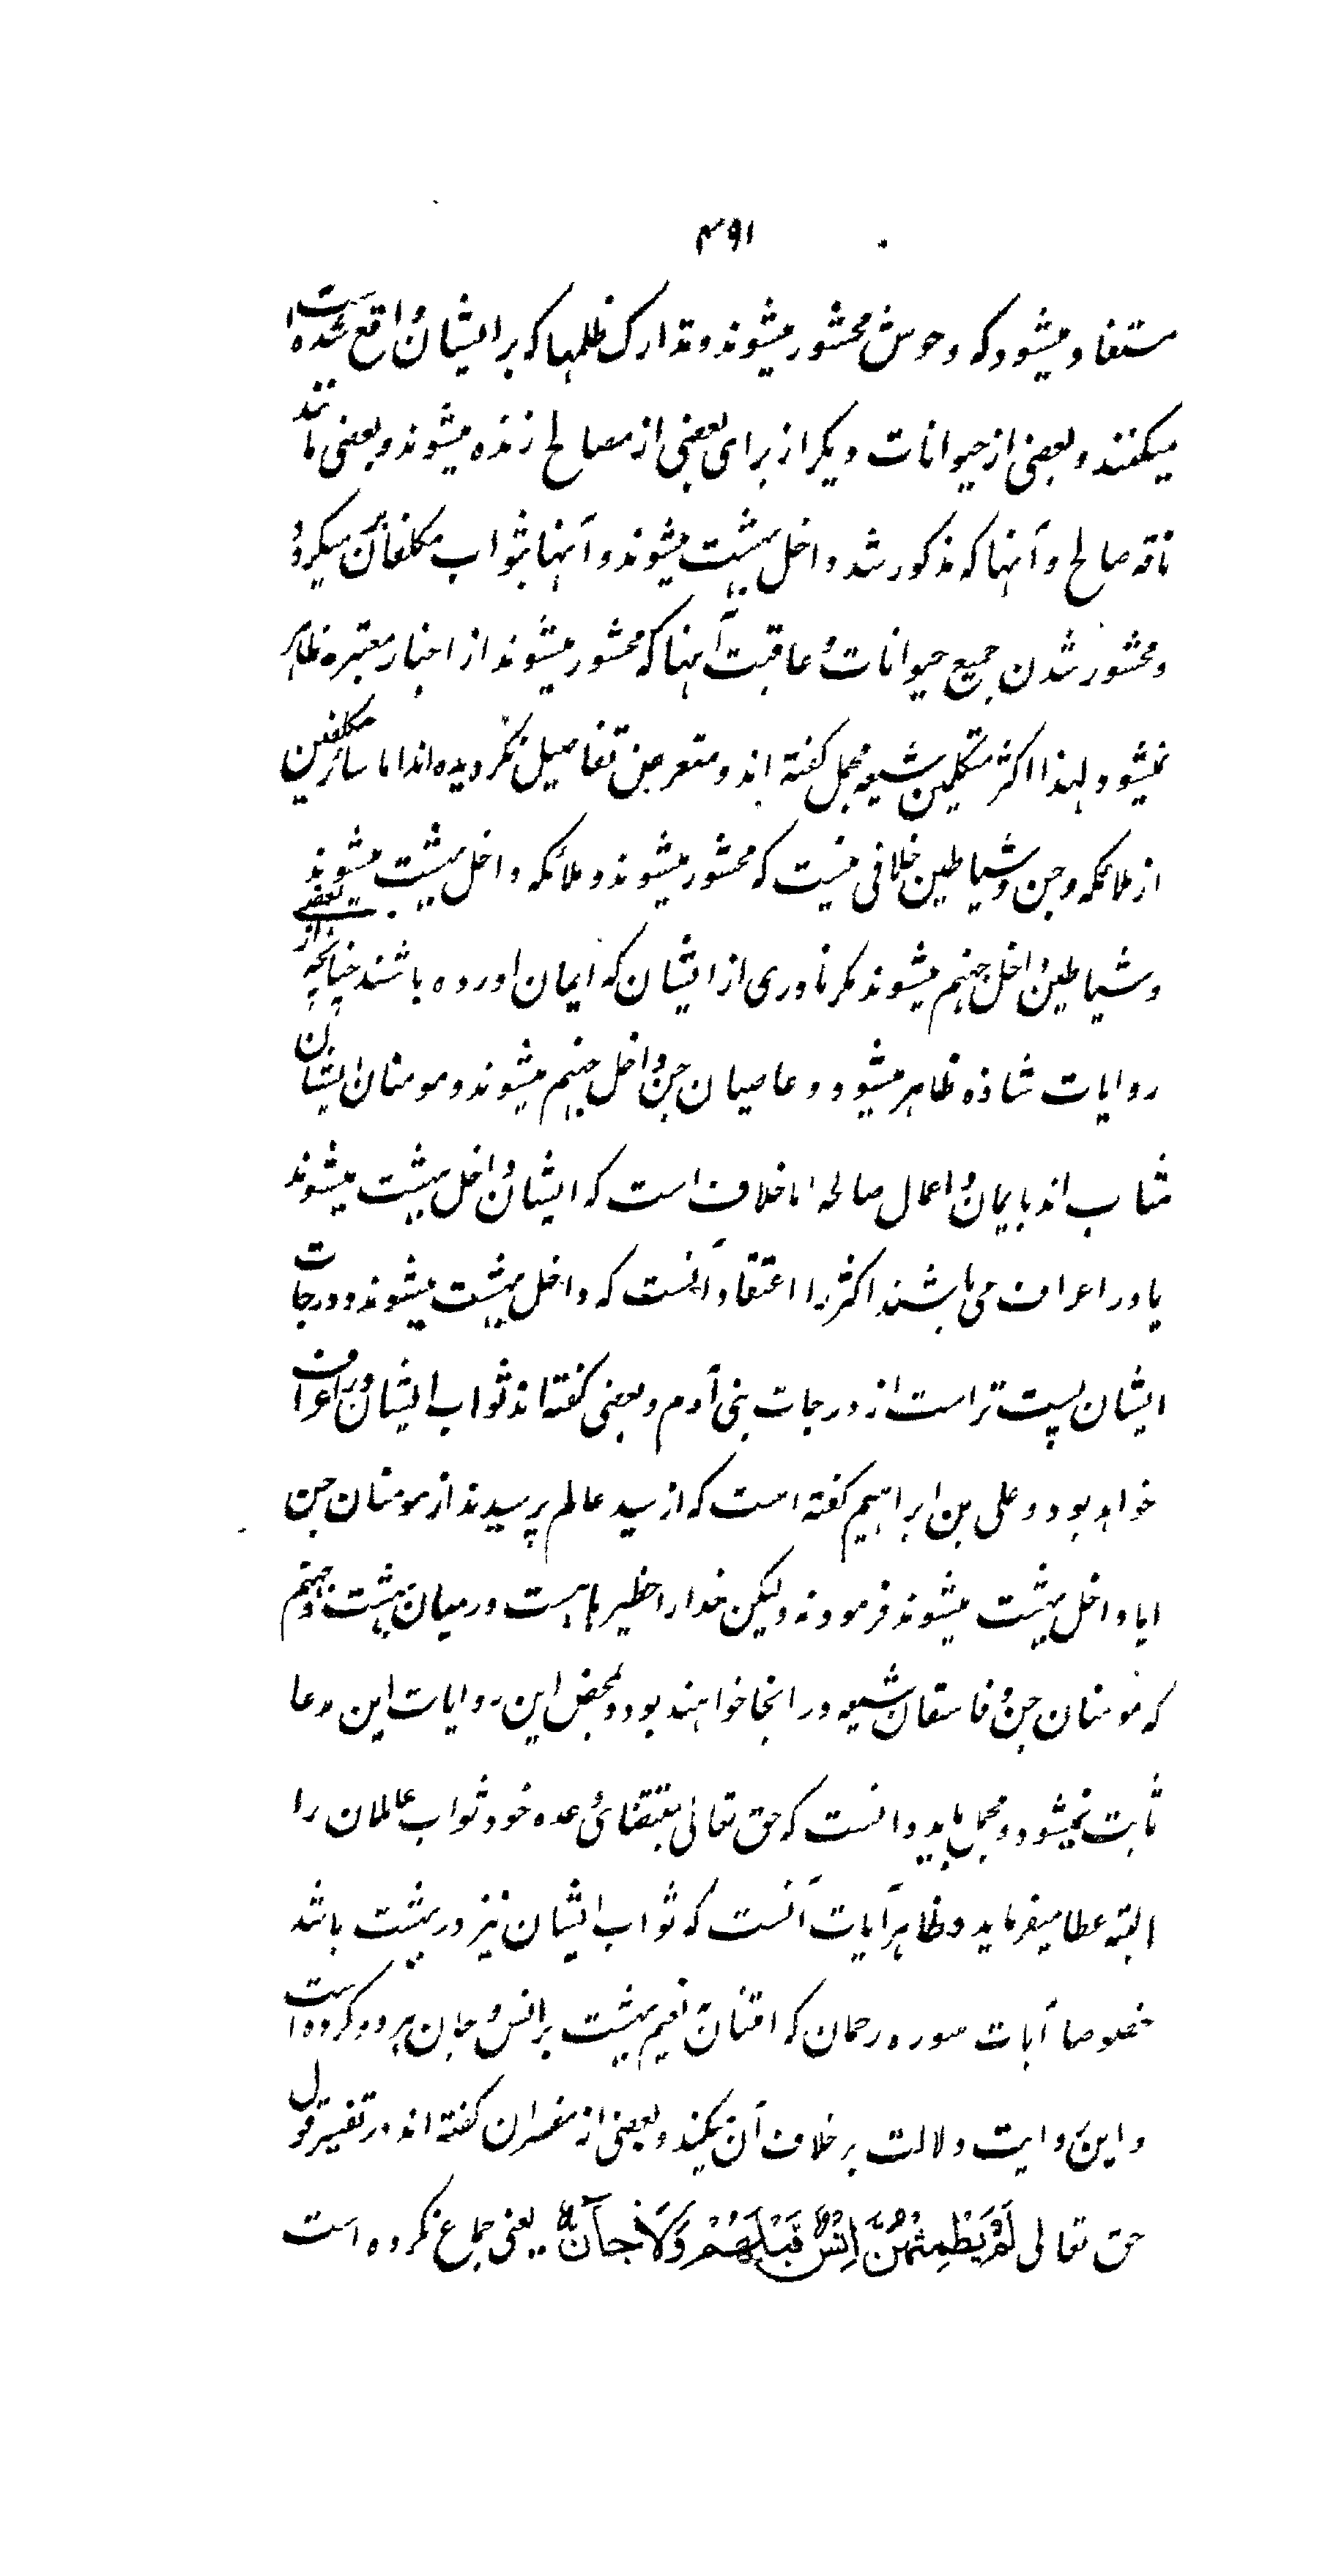 ۳۹۱
مستفاد میشود که وحوش محشور میشوند و تدارک ظلمها که بر ایشان واقع شده است
میکنند و بعضی از حیوانات دیگر از برای بعضی از مصالح زنده میشوند و بعضی مانند
ناقه صالح و آنها که مذکور شد داخل بهشت میشوند و آنها بثواب مکلفان میگردد
و محشور شدن جمیع حیوانات و عاقبت آنها که محشور میشوند از اخبار معتبره ظاهر
نمیشود لهذا اکثر متکلمین شیعه مجمل گفته اند و متعرض تفاصیل نگردیده اند اما سائر مکلفین
از ملائکه و جن و شیاطین خلافی نیست که محشور میشوند و ملائکه داخل بهشت میشوند
و شیاطین داخل جهنم میشوند مگر نادری از ایشان که ایمان اورده باشند چنانچه از بعضی
روایات شاذه ظاهر میشود و عاصیان جن داخل جهنم میشوند و مومنان ایشان
مثاب اند بایمان و اعمال صالحه اما خلاف است که ایشان داخل بهشت میشوند
یا در اعراف می باشند اکثر را اعتقاد آنست که داخل بهشت میشوند و درجات
ایشان پست تر است از درجات بنی آدم و بعضی گفته اند ثواب ایشان در اعراف
خواهد بود و علی بن ابراهیم گفته است که از سید عالم پرسیدند از مومنان جن
ایا داخل بهشت میشوند فرمود نه ولیکن خدا را حظیرها هست در میان بهشت و جهنم
که مومنان جن و فاسقان شیعه در انجا خواهند بود و بمحض این روایات این مدعا
ثابت نمیشود و مجمل باید دانست که حق تعالی بمقتضائ وعده خود ثواب عاملان را
البته عطا میفرماید و ظاهر آیات آنست که ثواب ایشان نیز در بهشت باشد
خصوصا آیات سوره رحمان که امتنان نعیم بهشت بر انس و جان هر دو کرده است
و این روایت دلالت بر خلاف آن نمیکند و بعضی از مفسران گفته اند در تفسیر قول
حق تعالی لَمْ يَطْمِثْهُنَّ اِنْسٌ قَبْلَهُمْ وَلَا جَآنٌّ یعنی جماع نکرده است